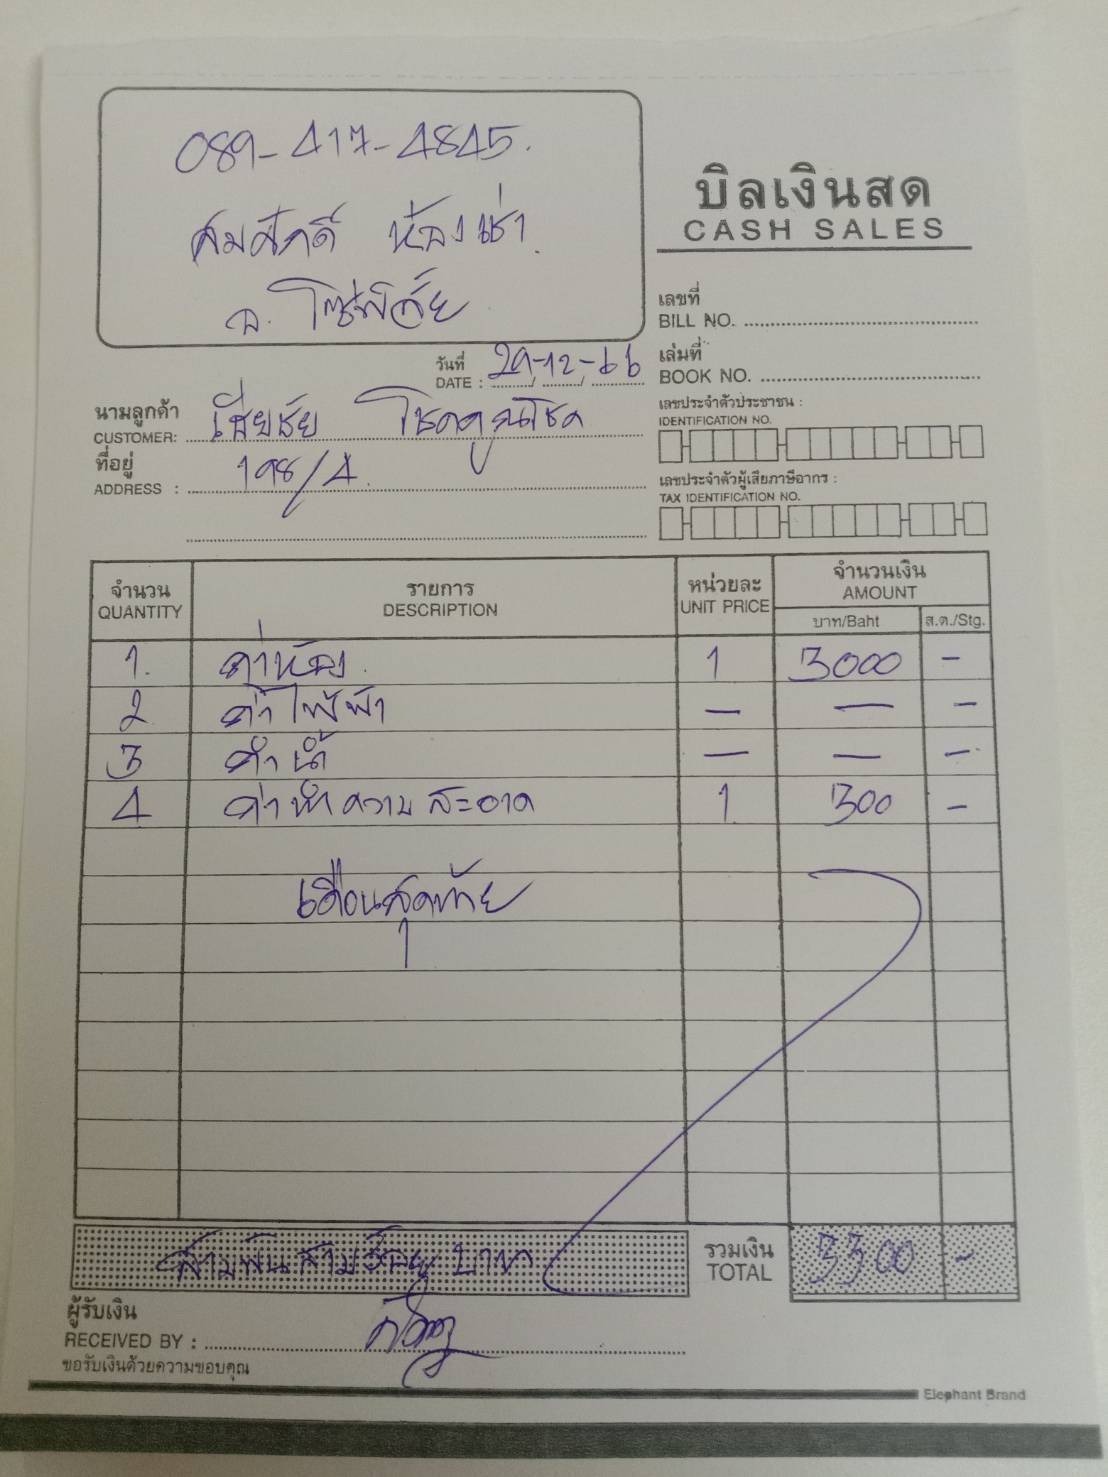 089-417-4845.
สมศักดิ์ ห้องเช่า.
อ. โพธิ์พิสัย
บิลเงินสด
CASH SALES
เลขที่
BILL NO.
วันที่
DATE : 29-12-66
เล่มที่
BOOK NO.
นามลูกค้า
CUSTOMER:
เลขประจำตัวประชาชน :
IDENTIFICATION NO.
ที่อยู่
ADDRESS : 198/4
เลขประจำตัวผู้เสียภาษีอากร :
TAX IDENTIFICATION NO.
จำนวน รายการ หน่วยละ จำนวนเงิน
QUANTITY DESCRIPTION UNIT PRICE AMOUNT
บาท/Baht ส.ต./Stg.
1. ค่าห้อง. 1 3000 -
2 ค่าไฟฟ้า - - -
3 ค่าน้ำ - - -
4 ค่าทำความสะอาด 1 300 -
เดือนสุดท้าย
สามพันสามร้อยบาท รวมเงิน 3300 -
TOTAL
ผู้รับเงิน
RECEIVED BY :
ขอรับเงินด้วยความขอบคุณ
Elephant Brand